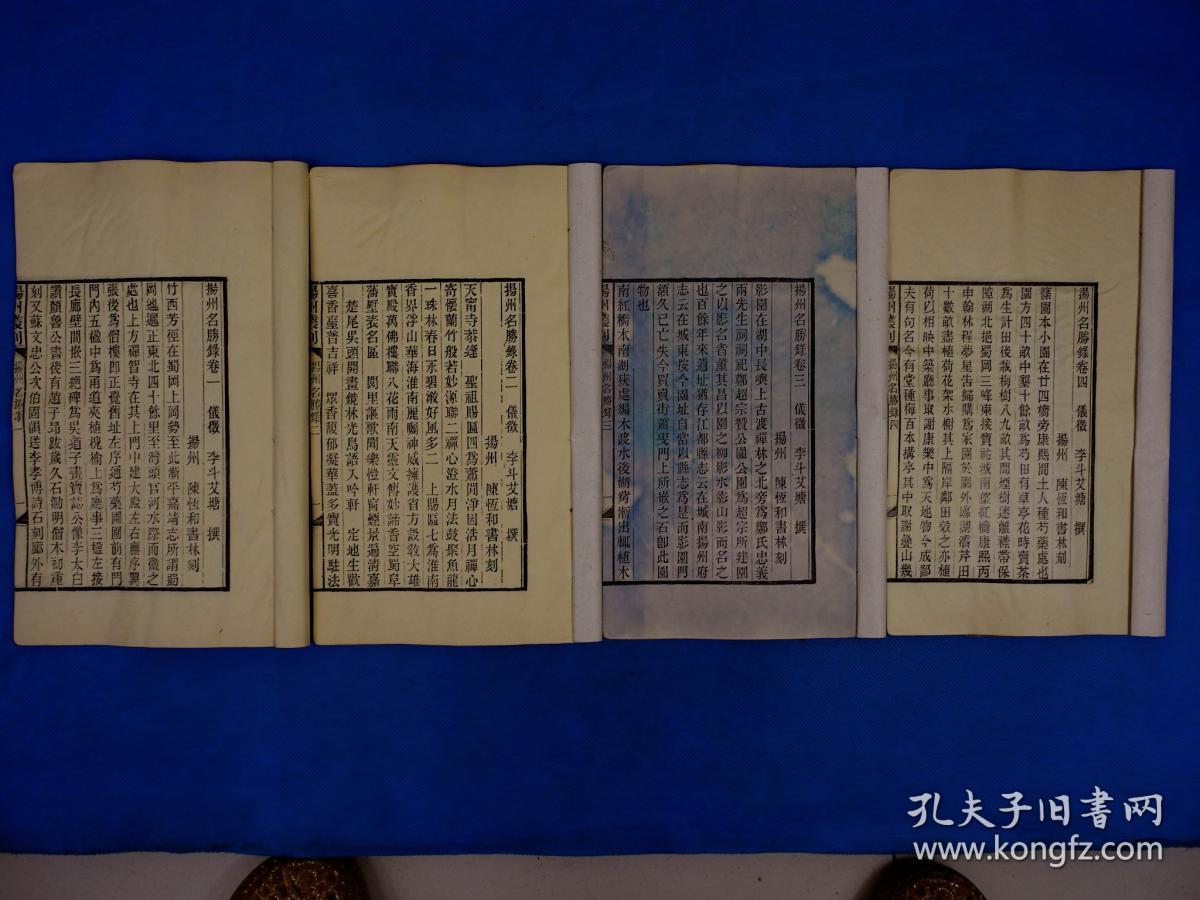 揚州名勝錄卷一 儀徵 李斗艾塘 撰
揚州 陳恆和書林刻
竹西芳徑在蜀岡上岡勢至此漸平嘉靖志所謂蜀
岡迤邐正東北四十餘里至灣頭官河水際而微之
處也上方禪智寺在其上門中建大殿左右廡序翼
張後爲僧樓郎正覺舊址左序通芍藥圃圃前有門
門內五楹中爲甬道夾植槐榆上爲廳事三楹左接
長廊壁間嵌三絕碑爲吳道子畫寶誌公像李太白
讚顏魯公書後有趙子昂跋歲久石泐明僧本初重
刻又蘇文忠公次伯固韻送李孝博詩石刻廊外有
揚州叢刊
揚州名勝錄一
一
揚州名勝錄卷二 儀徵 李斗艾塘 撰
揚州 陳恆和書林刻
天甯寺恭逢 聖祖賜區四爲蕭閒淨因活月禪心
寄懷蘭竹般若妙源聯二禪心澄水月法鼓聚魚龍
一珠林春日永碧漵好風多二 上賜區七爲淮南
香界浮山華海淮南麗矚神威擁護省方設敎大雄
寶殿萬佛樓聯八花雨南天靈文傳妙諦香空蜀阜
楚尾吳頭開畫鏡林光鳥語入吟軒 定地生歡
喜香臺普吉祥 眾香馥郁凝華蓋多寶光明駐法
揚州叢刊
揚州名勝錄二
一
揚州名勝錄卷三 儀徵 李斗艾塘 撰
揚州 陳恆和書林刻
影園在湖中長嶼上古渡禪林之北旁爲鄭氏忠義
兩先生祠祠祀鄭超宗贊公園公園爲超宗所建園
之以影名者董其昌以園之柳影水影山影而名之
也百餘年來遺址猶存江都縣志云在城南揚州府
志云在城東按今園址自當以縣志爲是而影園門
額久已亡失今買賣街蕭叟門上所嵌之石卽此園
物也
南紅橋木南湖狹處編木渡水後湖旁漸出輒植木
揚州叢刊
揚州名勝錄三
一
揚州名勝錄卷四 儀徵 李斗艾塘 撰
揚州 陳恆和書林刻
篠園本小園在廿四橋旁康熙間土人種芍藥處也
園方四十畝中墾十餘畝爲芍田有草亭花時賣茶
爲生計田後栽梅樹八九畝其間煙樹迷離襟帶保
障湖北挹蜀岡三峰東接寶祐城南望紅橋康熙丙
申翰林程夢星告歸購爲家園於園外臨湖濬芹田
十數畝盡植荷花架水榭其上隔岸鄰田效之亦植
荷以相映中築廳事取謝康樂中爲天地物今成鄙
夫有句名今有堂種梅百本構亭其中取謝疊山幾
揚州叢刊
揚州名勝錄四
一
孔夫子旧书网
www.kongfz.com